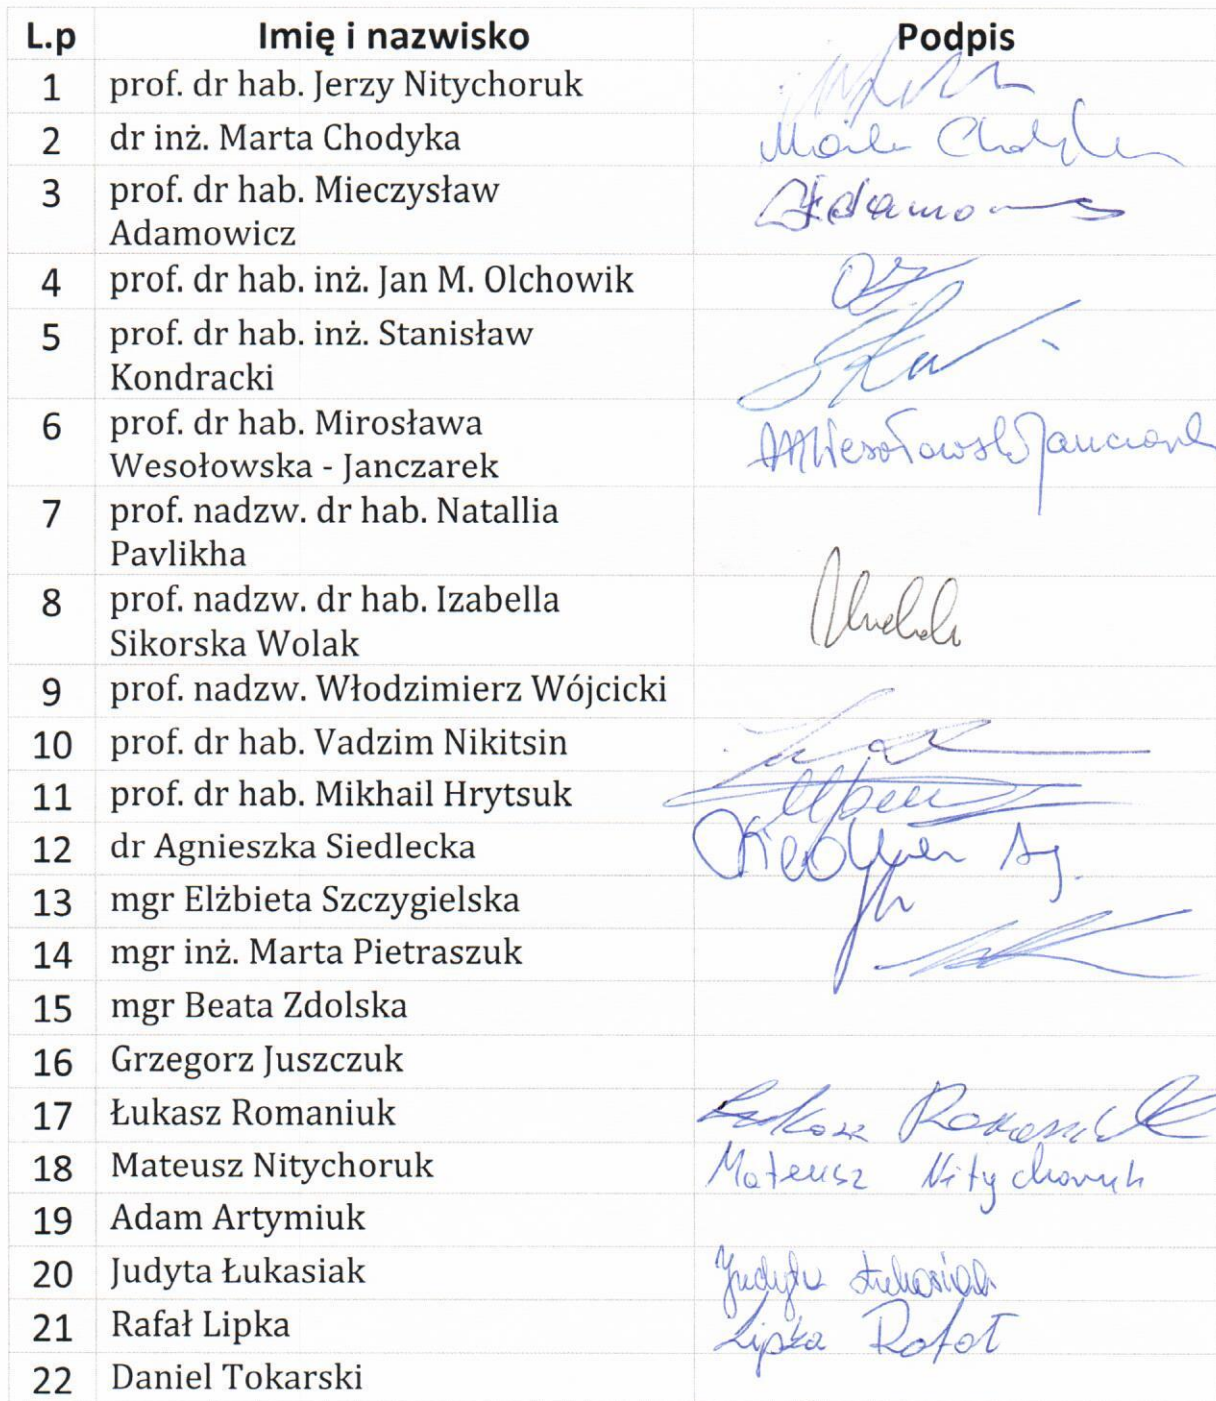 L.p Imię i nazwisko Podpis
1 prof. dr hab. Jerzy Nitychoruk
2 dr inż. Marta Chodyka Marta Chodyka
3 prof. dr hab. Mieczysław
Adamowicz
4 prof. dr hab. inż. Jan M. Olchowik
5 prof. dr hab. inż. Stanisław
Kondracki
6 prof. dr hab. Mirosława
Wesołowska - Janczarek
7 prof. nadzw. dr hab. Natallia
Pavlikha
8 prof. nadzw. dr hab. Izabella
Sikorska Wolak
9 prof. nadzw. Włodzimierz Wójcicki
10 prof. dr hab. Vadzim Nikitsin
11 prof. dr hab. Mikhail Hrytsuk
12 dr Agnieszka Siedlecka
13 mgr Elżbieta Szczygielska
14 mgr inż. Marta Pietraszuk
15 mgr Beata Zdolska
16 Grzegorz Juszczuk
17 Łukasz Romaniuk Łukasz Romaniuk
18 Mateusz Nitychoruk Mateusz Nitychoruk
19 Adam Artymiuk
20 Judyta Łukasiak Judyta Łukasiak
21 Rafał Lipka Lipka Rafał
22 Daniel Tokarski